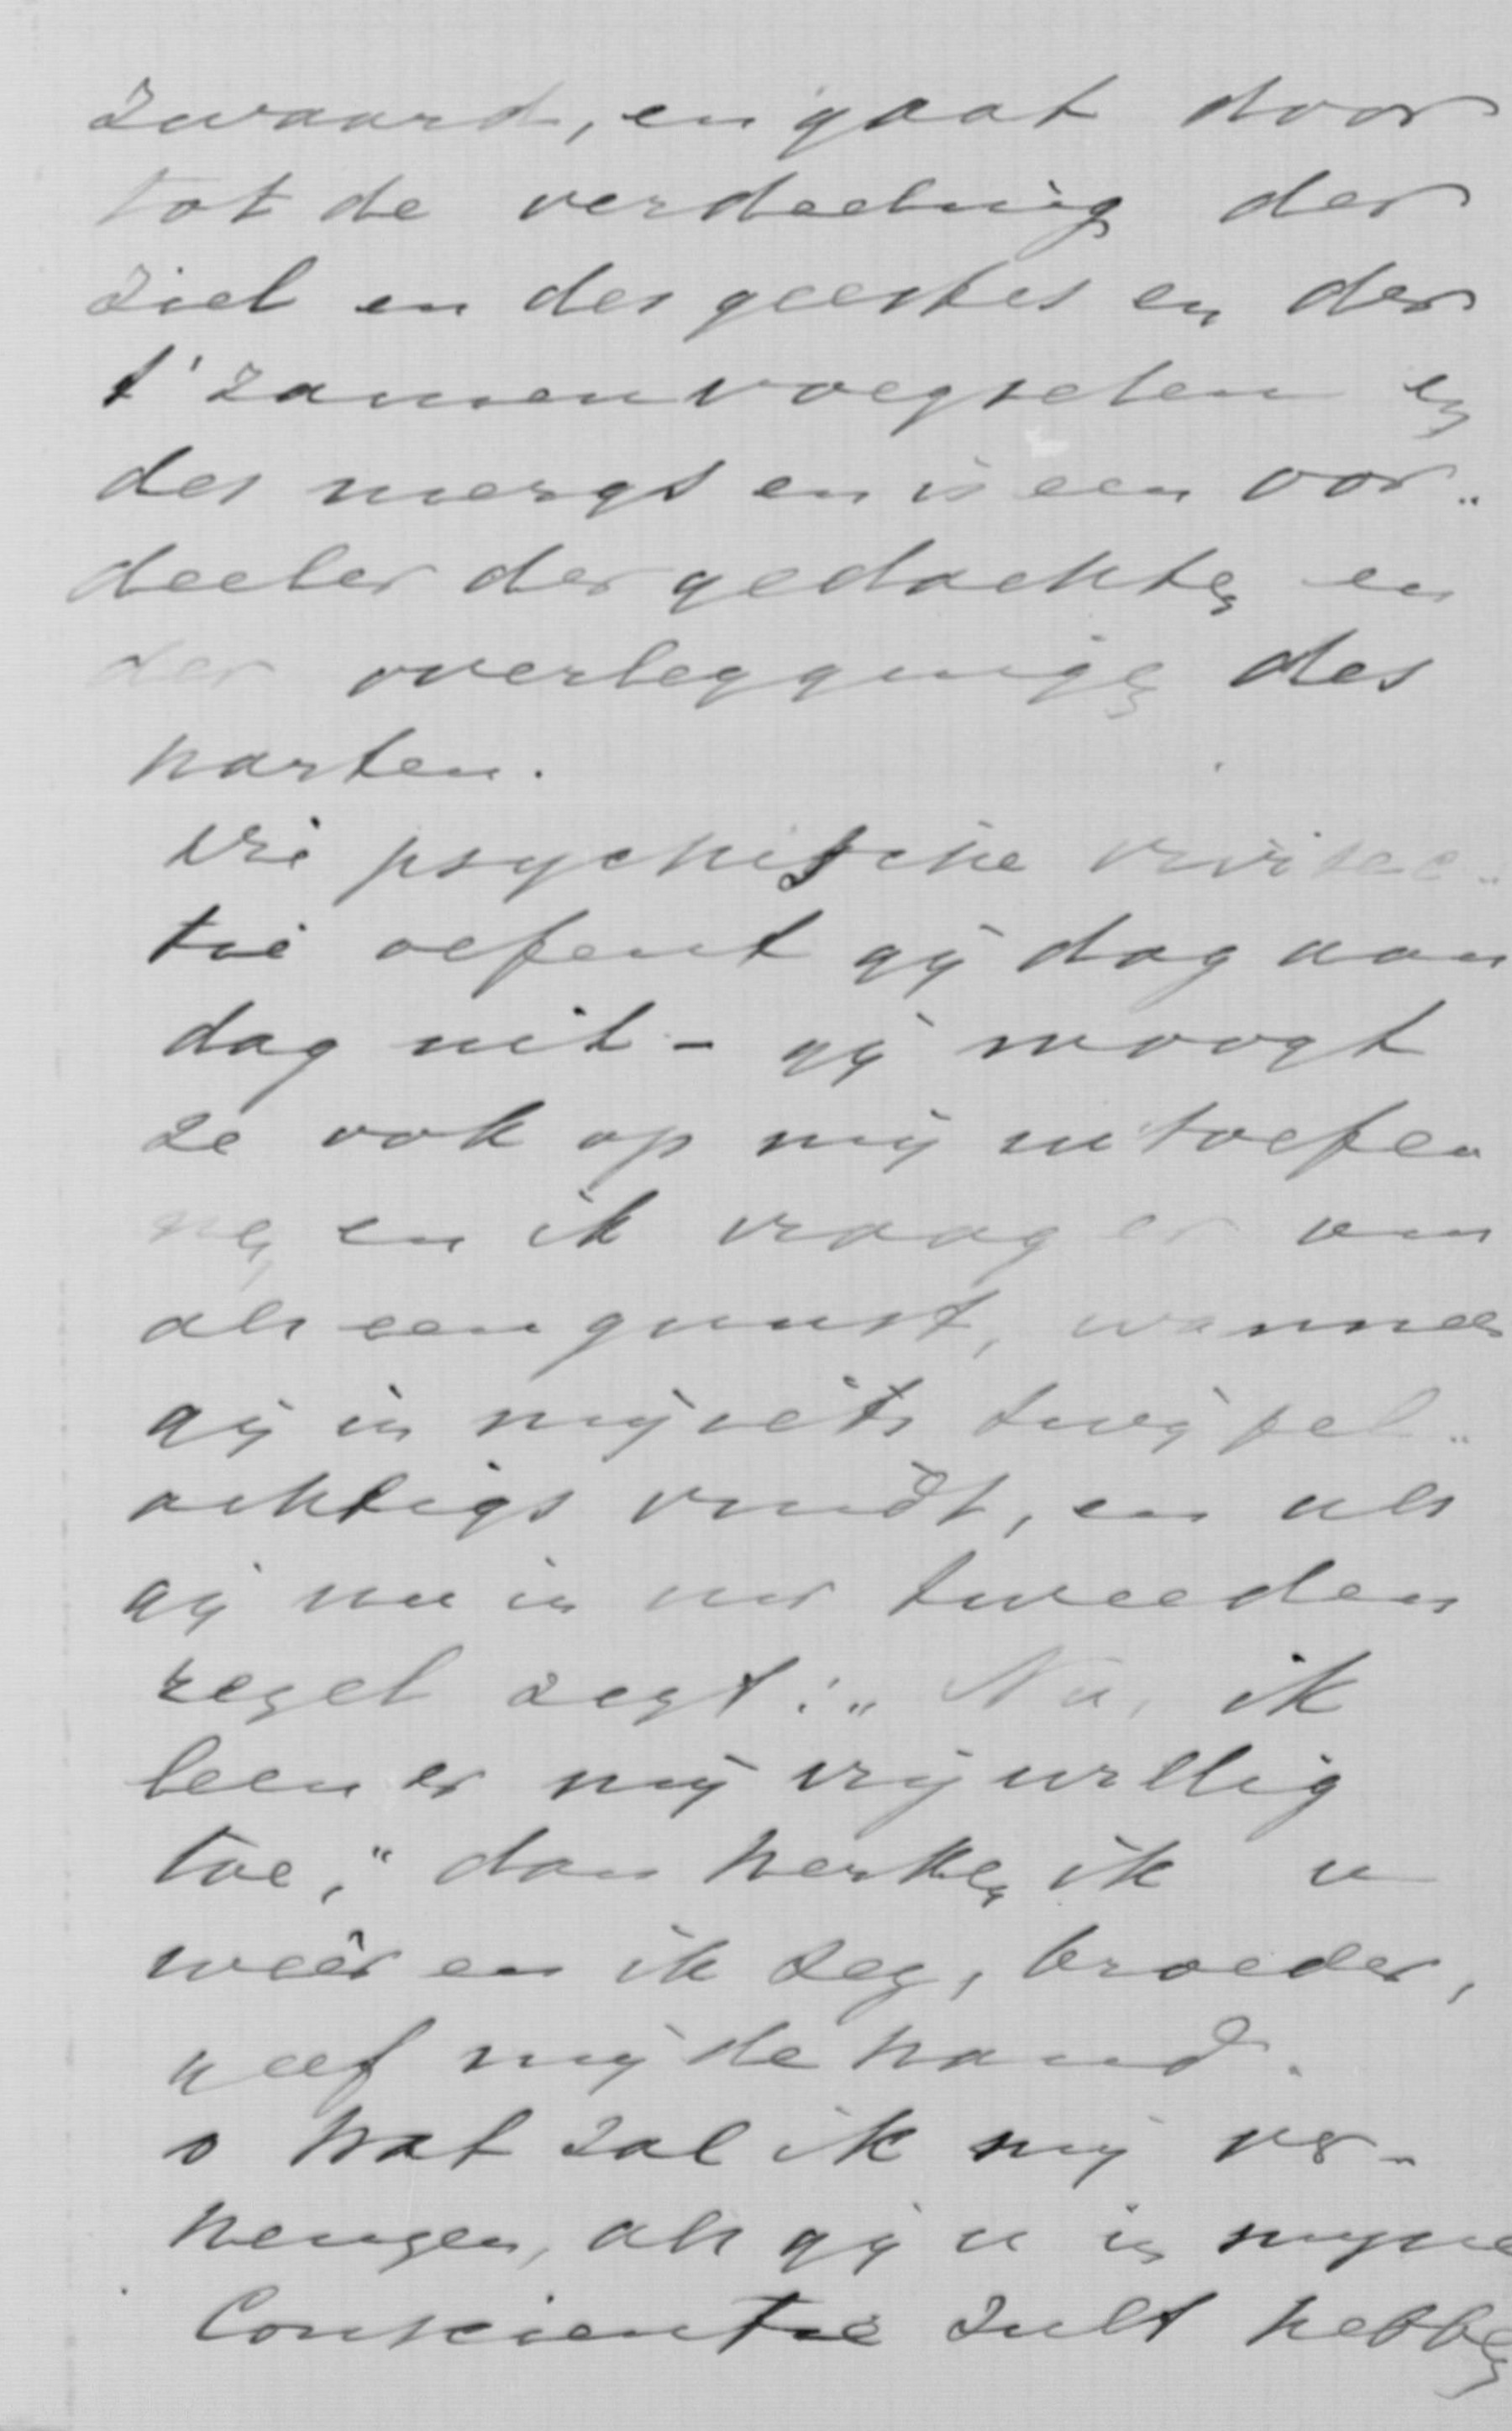 zwaard, en gaat door
tot de verdeeling der
ziel en des geestes en der
t'zamenvoegselen en
des mergs en is een oor„
deeler der gedachten en
der overleggingen des
harten.
Die psychische vivisec„
tie oefent gij dag aan
dag uit - gij moogt
ze ook op mij uitoefe„
nen, en ik vraag er om
als een gunst, wanneer
gij in mij iets twijfel„
achtigs vindt, en als
gij nu in uw tweeden
regel zegt: „Nu, ik
leen er mij vrijwillig
toe," dan herken ik u
weêr en ik zeg, broeder,
geef mij de hand.
o Wat zal ik mij ver„
heugen, als gij u in mijne
Conscientie zult hebben